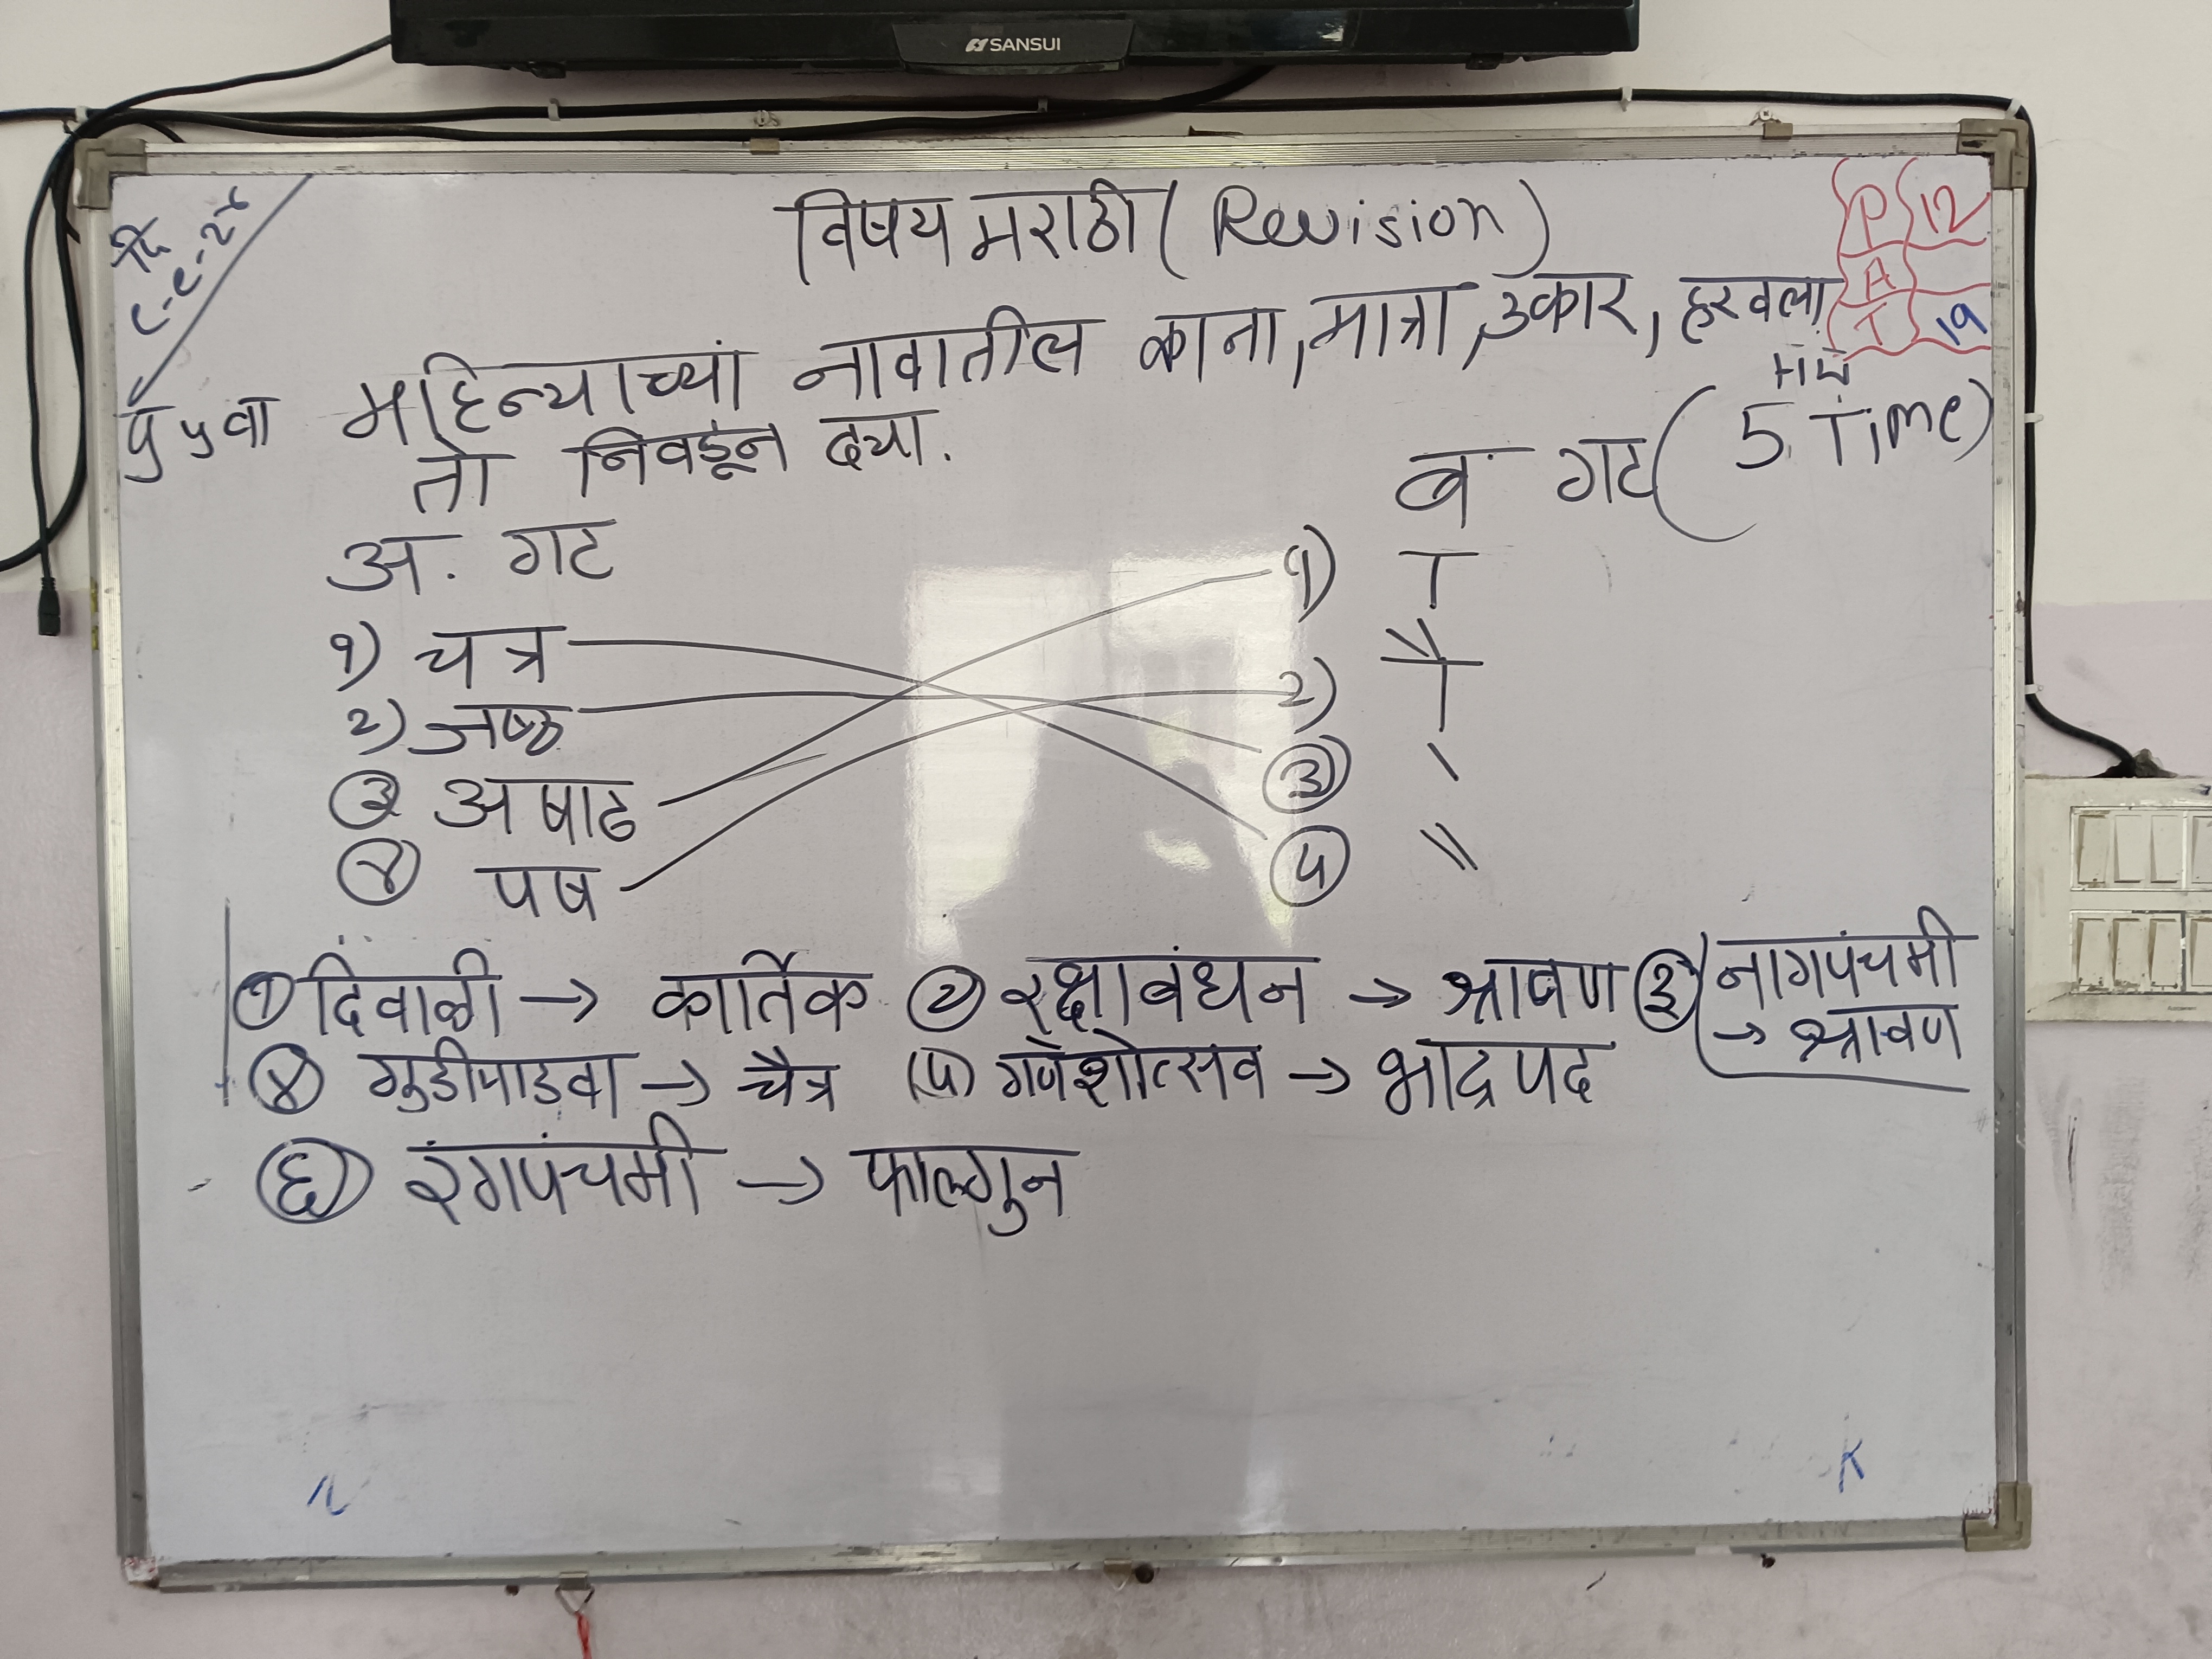 SANSUI
विषय मराठी (Revision)
P 12
A
T 19
महिन्याच्यां नावातील काना, मात्रा, उकार, हरवला
तो निवडून दया.
अ. गट
ब गट (5 Time)
१) चत्र
२) जष्ठ
३ अषाढ
४ पष
१) ा
२) ौ
३) े
५ ै
१ दिवाळी → कार्तिक २ रक्षाबंधन → श्रावण ३ नागपंचमी
→ श्रावण
४ गुडीपाडवा → चैत्र (५) गणेशोत्सव → भाद्रपद
६ रंगपंचमी → फाल्गुन
K